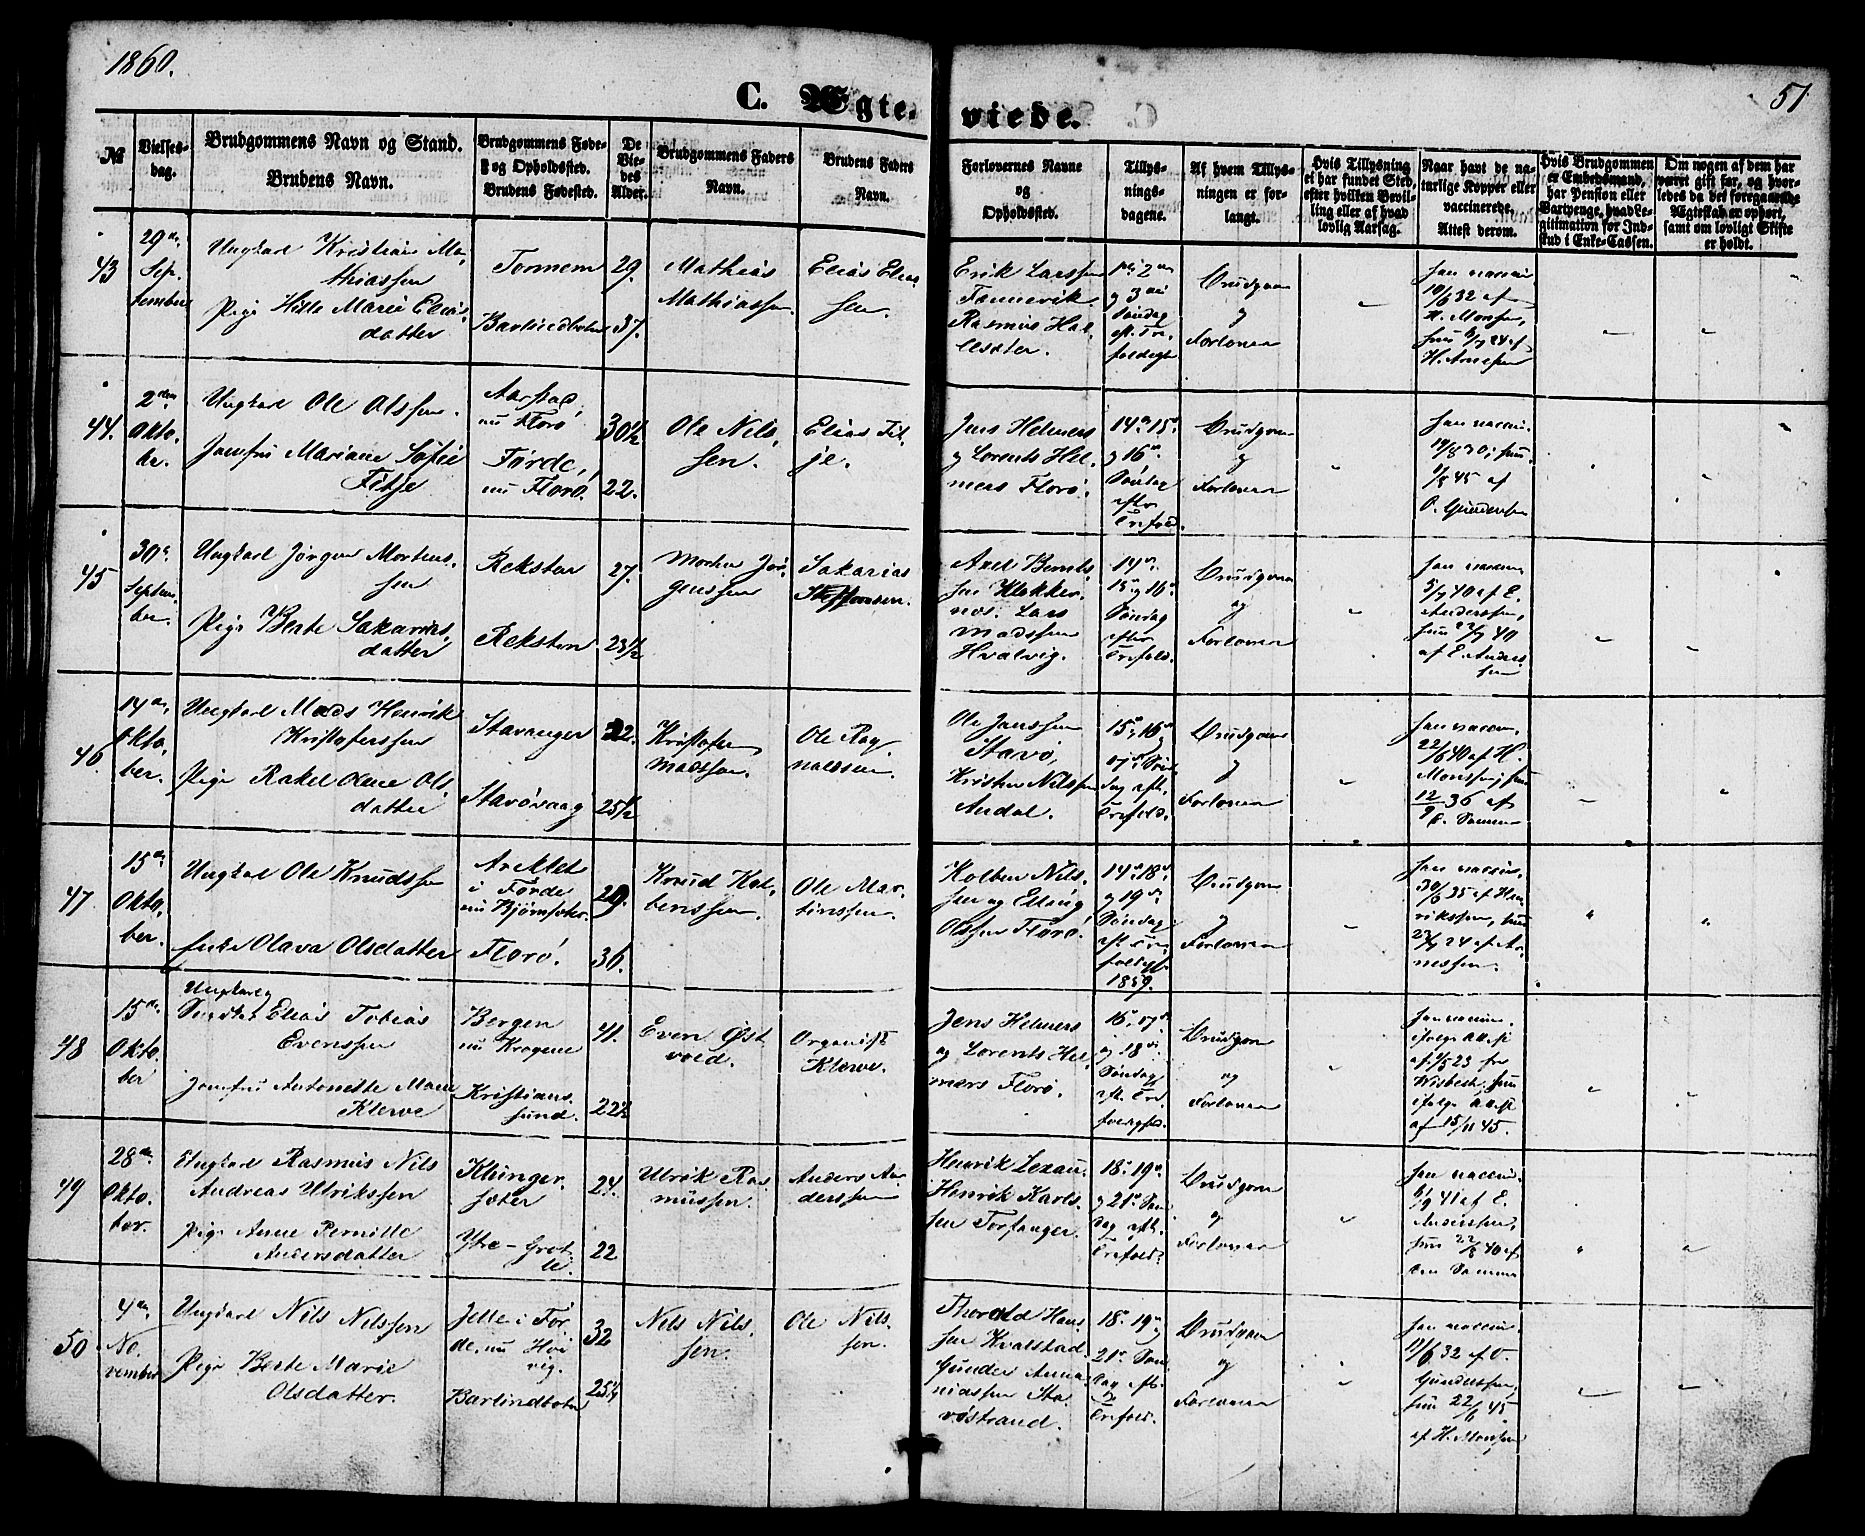 1860.
51
C. Ægte-
viede.
№
Vielses-
dag.
Brudgommens Navn og Stand.
Brudens Navn.
Brudgommens Føde-
og Opholdssted.
Brudens Fødested.
De
Vie-
des
Alder.
Brudgommens Faders
Navn.
Brudens Faders
Navn.
Forlovernes Navne
og
Opholdssted.
Tillys-
nings-
dagene.
Af hvem Tillys-
ningen er for-
langt.
Hvis Tillysning
ei har fundet Sted,
efter hvilken Bevil-
ling eller af hvad
lovlig Aarsag.
Naar havt de na-
turlige Kopper eller
vaccinerede.
Attest derom.
Hvis Brudgommen
er Embedsmand,
har Pension eller
Vartpenge, hvad Le-
gitimation for Ind-
skud i Enke-Cassen.
Om nogen af dem har
været gift før, og hvor-
ledes da det foregaaende
Ægteskab er ophørt,
samt om lovligt Skifte
er holdt.
43
29de
Sep-
tember
Ungkarl Kristian Ma-
thiassen
Pige Hille Marie Elias-
datter
Barlindbotn
29.
37.
Mathias
Mathiassen.
Elias Elias-
sen
Erik Larssen
Rasmus Hal-
lesæter.
2den
og 3die
Søndag
eft. Tre-
foldigh.
Brudgom
og
Forlovere
han vaccin.
10/6 32 af
H. Monsen,
hun 24 af
H. Arnesen
44.
2den
Okto-
ber.
Ungkarl Ole Olssen.
Jomfru Mariane Sofie
Fitje
Aarstad,
nu Florø
Førde,
nu Florø.
30½
22.
Ole Nils-
sen.
Elias Fit-
je.
Jens Helmers
og Lorents Hel-
mers Florø.
14de 15de
og 16de
Søndag
efter
Trefold.
Brudgom
og
Forlovere
han vaccin.
30, hun
45 af
O. Gundersen
45
30te
Septem-
ber.
Ungkarl Jørgen Mortens-
sen
Pige Berte Sakarias-
datter
Reksten
Reksten
27.
23½
Morten Jør-
genssen
Sakarias
Steffensen.
Axel Bernts-
sen Klokker-
nes. Lars
Madssen
Hvalvig.
14de
15 og 16de
Søndag
efter
Trefold.
Brudgom
og
Forlovere
han vaccin.
40 af E.
Anderssen,
hun 40
af E. Anders-
sen
46
14de
Okto-
ber.
Ungkarl Mads Henrik
Kristoferssen
Pige Rakel Olene Ols-
datter
Stavanger
Stavøvaag
22.
25½
Kristofer
Madssen.
Ole Rag-
naldssen.
Ole Janssen
Stavø,
Kristen Nilssen
Aadal.
15de, 16de
og
17de Søn-
dag eft.
Trefold.
Brudgom
og
Forlovere
han vaccin.
22/6 40 af H.
Monssen, hun
12/9 36 af
d. Samme
47
15de
Okto-
ber.
Ungkarl Ole Knudssen
Enke Olava Olsdatter
Areklet
i Førde
nu Bjørnsæter.
Florø.
29.
36.
Knud Kol-
benssen.
Ole Mar-
tinssen.
Kolben Nils-
sen og Elling
Olssen Florø.
14de 18de
og 19de
Søndag
eft. Tre-
foldigh.
1859.
Brudgom
og
Forlovere
han vaccin.
30/6 35 af Hen-
rikssen, hun
24 af Ar-
nessen.
48
15de
Okto-
ber
Ungkarl
Elias Tobias
Evenssen
Jomfru Antonette Marie
Klerve
Bergen
Kristians-
sund.
41.
22½
Even Øst-
vold.
Organist
Klerve.
Jens Helmers
og Lorents Hel-
mers Florø.
16de 17de
og 18de
Søndag
eft. Tre-
foldighed.
Brudgom
og
Forlovere
han vaccin.
ifølge Attest
af 23 fra
Wisbech, hun
ifølge Attest
af 15/11 45.
49
28de
Okto-
ber.
Ungkarl Rasmus Nils
Andreas Ulrikssen
Pige Anne Pernille
Andersdatter
Klinger-
sæter
Ytre-Grot-
le.
24.
22
Ulrik Ras-
mussen.
Anders An-
derssen
Henrik Lexau.
Henrik Karls-
sen Torsanger.
18de 19de
og 21de Søn-
dag eft.
Trefold.
Brudgom
og
Forlovere
han vaccin.
41 af E.
Anderssen,
hun 40 af
den Samme
50
4de
No-
vember
Ungkarl Nils Nilssen
Pige Berte Marie
Olsdatter.
i Før-
de, nu Høi-
vig.
Barlindbotn
32
25¼
Nils Nils-
sen.
Ole Nils-
sen.
Thorvald Hans-
sen Kvalstad
Gunder Anna-
niassen Sta-
vøstrand.
18de 19de
og
21de Søn-
dag eft.
Trefold.
Brudgom
og
Forlovere
han vaccin.
32 af O.
Gunderssen,
hun 22/6 45
af H. Monsen